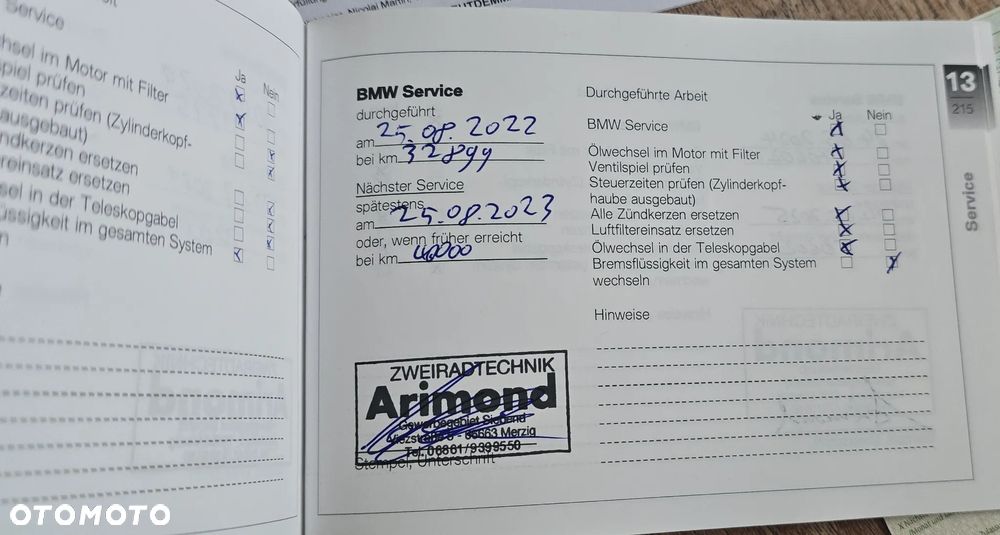 Service
hsel im Motor mit Filter
spiel prüfen
zeiten prüfen (Zylinderkopf-
ausgebaut)
ndkerzen ersetzen
ereinsatz ersetzen
sel in der Teleskopgabel
üssigkeit im gesamten System
n
Ja Nein
BMW Service
durchgeführt
am 25.08.2022
bei km 32899
Nächster Service
spätestens
am 25.08.2023
oder, wenn früher erreicht
bei km
ZWEIRADTECHNIK
Arimond
Gewerbegebiet
66663 Merzig
Tel. 06861/9399550
Stempel, Unterschrift
Durchgeführte Arbeit
Ja Nein
BMW Service
Ölwechsel im Motor mit Filter
Ventilspiel prüfen
Steuerzeiten prüfen (Zylinderkopf-
haube ausgebaut)
Alle Zündkerzen ersetzen
Luftfiltereinsatz ersetzen
Ölwechsel in der Teleskopgabel
Bremsflüssigkeit im gesamten System
wechseln
Hinweise
13
215
Service
OTOMOTO